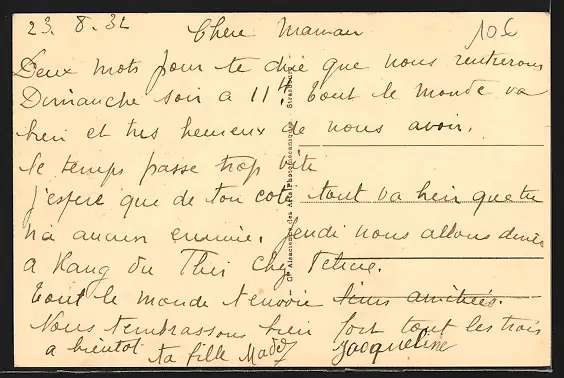 23. 8. 32 Chere Maman 10c
Deux mots pour te dire que nous rentrerons
Dimanche soir a 11h. tout le monde va
bien et tres heureux de nous avoir.
le temps passe trop vite
j'espere que de ton coté tout va bien que tu
n'a aucun ennuie. Jeudi nous allons diner
a du chez
tout le monde t'envoie leurs amitiées.
Nous t'embrassons bien fort tout les trois
a bientot ta fille Mad Jacqueline
Cie Alsacienne des Arts Photomécaniques - Strasbourg